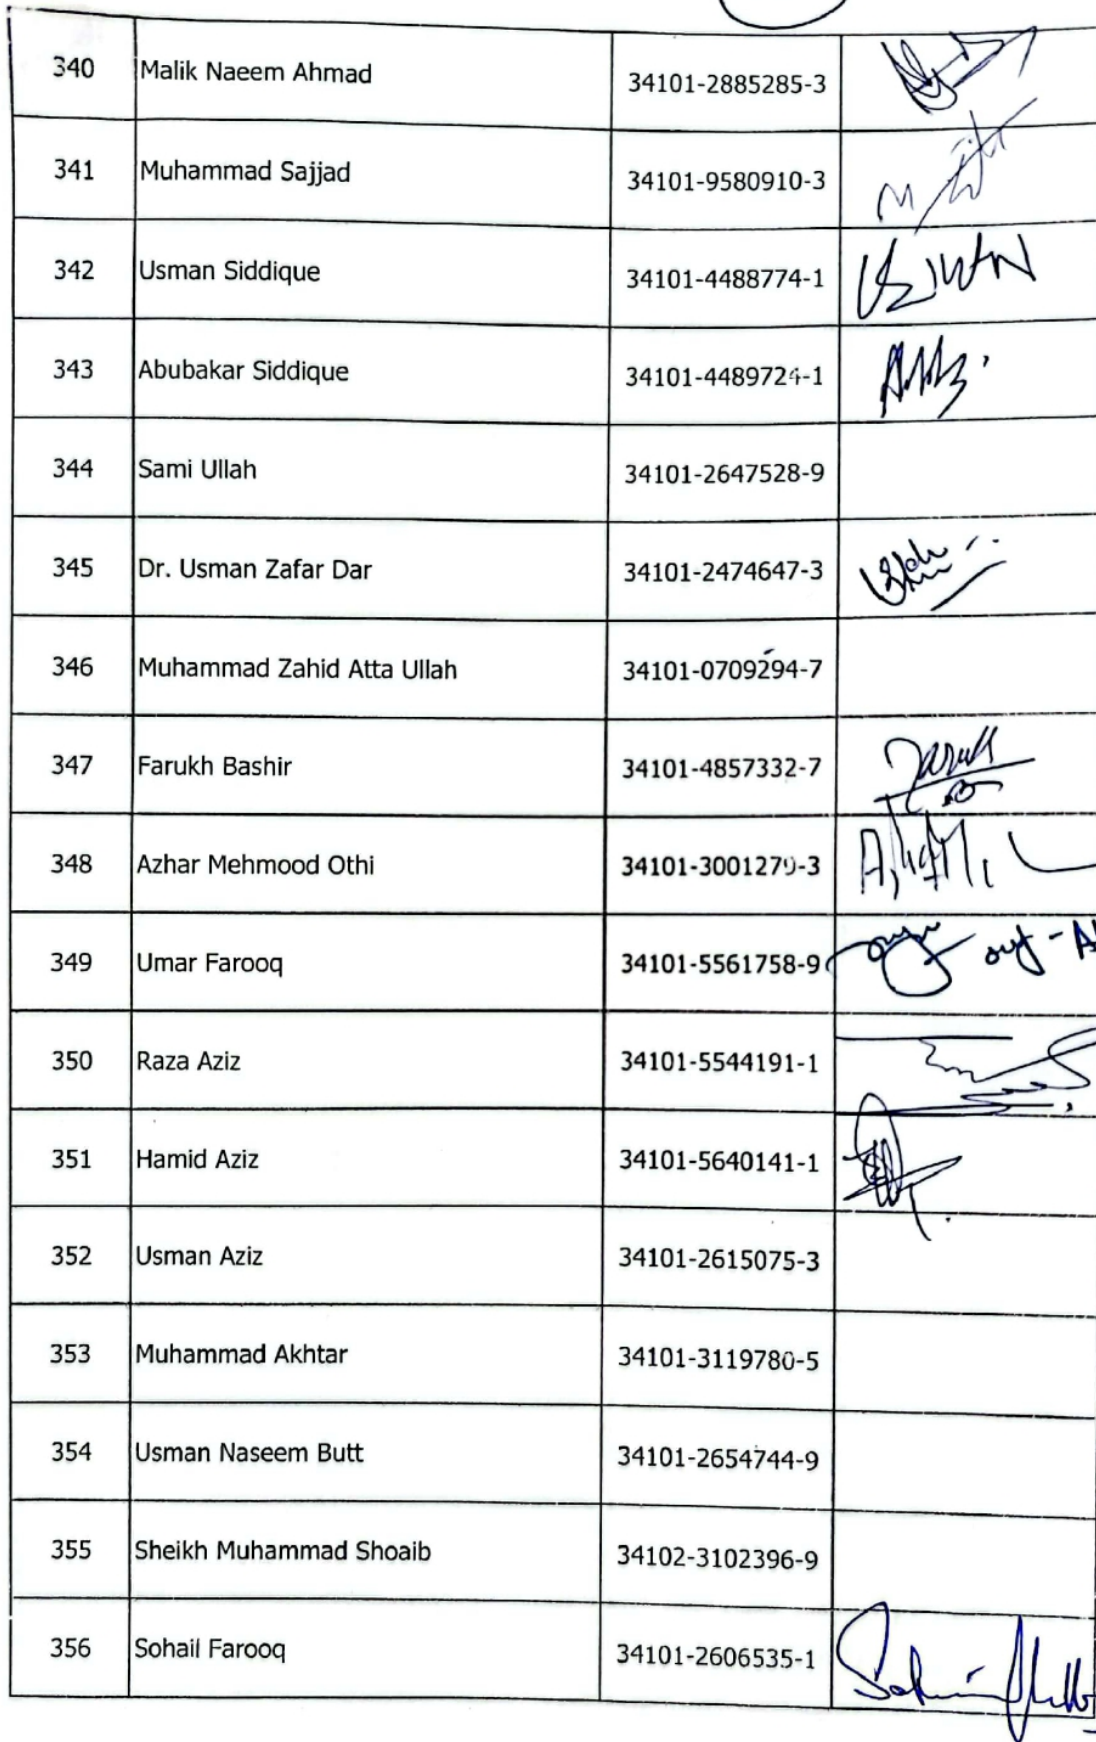 340 Malik Naeem Ahmad 34101-2885285-3
341 Muhammad Sajjad 34101-9580910-3
342 Usman Siddique 34101-4488774-1
343 Abubakar Siddique 34101-4489724-1
344 Sami Ullah 34101-2647528-9
345 Dr. Usman Zafar Dar 34101-2474647-3
346 Muhammad Zahid Atta Ullah 34101-0709294-7
347 Farukh Bashir 34101-4857332-7
348 Azhar Mehmood Othi 34101-3001279-3
349 Umar Farooq 34101-5561758-9
350 Raza Aziz 34101-5544191-1
351 Hamid Aziz 34101-5640141-1
352 Usman Aziz 34101-2615075-3
353 Muhammad Akhtar 34101-3119780-5
354 Usman Naseem Butt 34101-2654744-9
355 Sheikh Muhammad Shoaib 34102-3102396-9
356 Sohail Farooq 34101-2606535-1